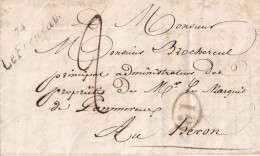 74
Monsieur
Monsieur Brochereul
principal administrateur des
propriétés de Mr. le Marquis
de Pommereux
Au Heron